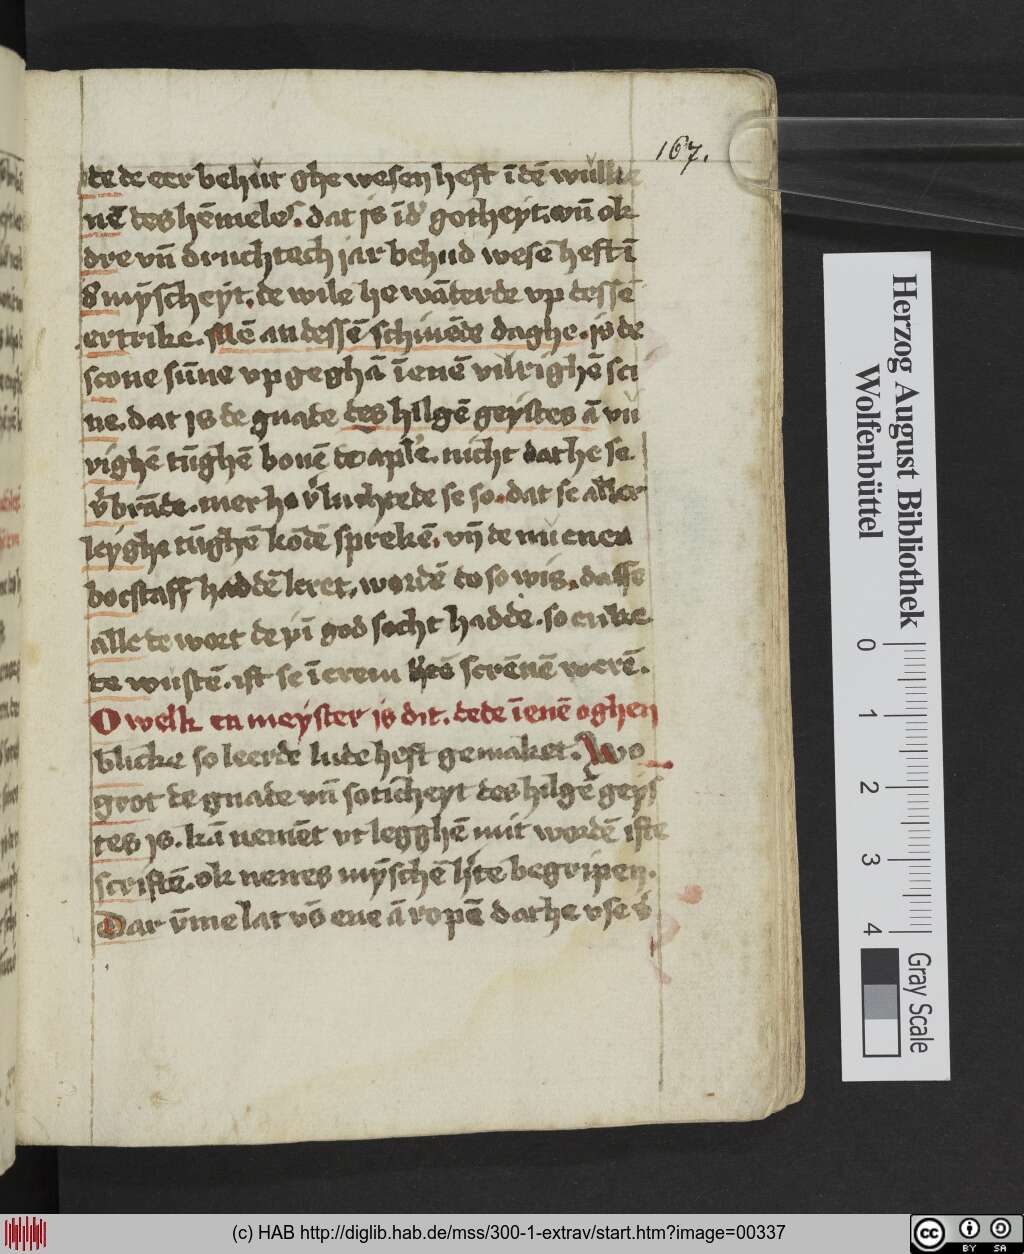 167.
de de eer behůt ghe wesen heft ī dē wůlke
nē des hēmeles. dat is ī d' gotheyt. vn̄ ok
dre vn̄ druchtech jar behud wesē heft ī
d' mȳscheyt. de wile he wāderde vp dessē
ertrike. Mē an dessē schinēde daghe. is de
scone sūne vp geghā ī enē vilrighē sci
ne. dat is de gnade des hilgē geystes ā vů
righē tūghē bouē de apl'e. nicht dat he se
v'brāde. mer he v'luchtede se so. dat se aller
leyghe tūghē kōdē sprekē. vn̄ de nů enen
bocstaff haddē leret. wordē do so wis. dat se
alle de wort de yī god secht hadde. so enke
de wůstē. ift se ī erem h'tē screuē werē.
O welk en meyster is dit. de de ī enē oghen
blicke so leerde lude heft gemaket. Wo
grot de gnade vn̄ soticheyt des hilgē geys
tes is. kā nemēt vt legghē mit wordē ifte
scriftē. ok nenes mȳschē h'te begripen.
Dar v̄me lat vs ene ā ropē dat he vse v'
Herzog August Bibliothek
Wolfenbüttel
0 1 2 3 4
Gray Scale
(c) HAB http://diglib.hab.de/mss/300-1-extrav/start.htm?image=00337
cc BY SA